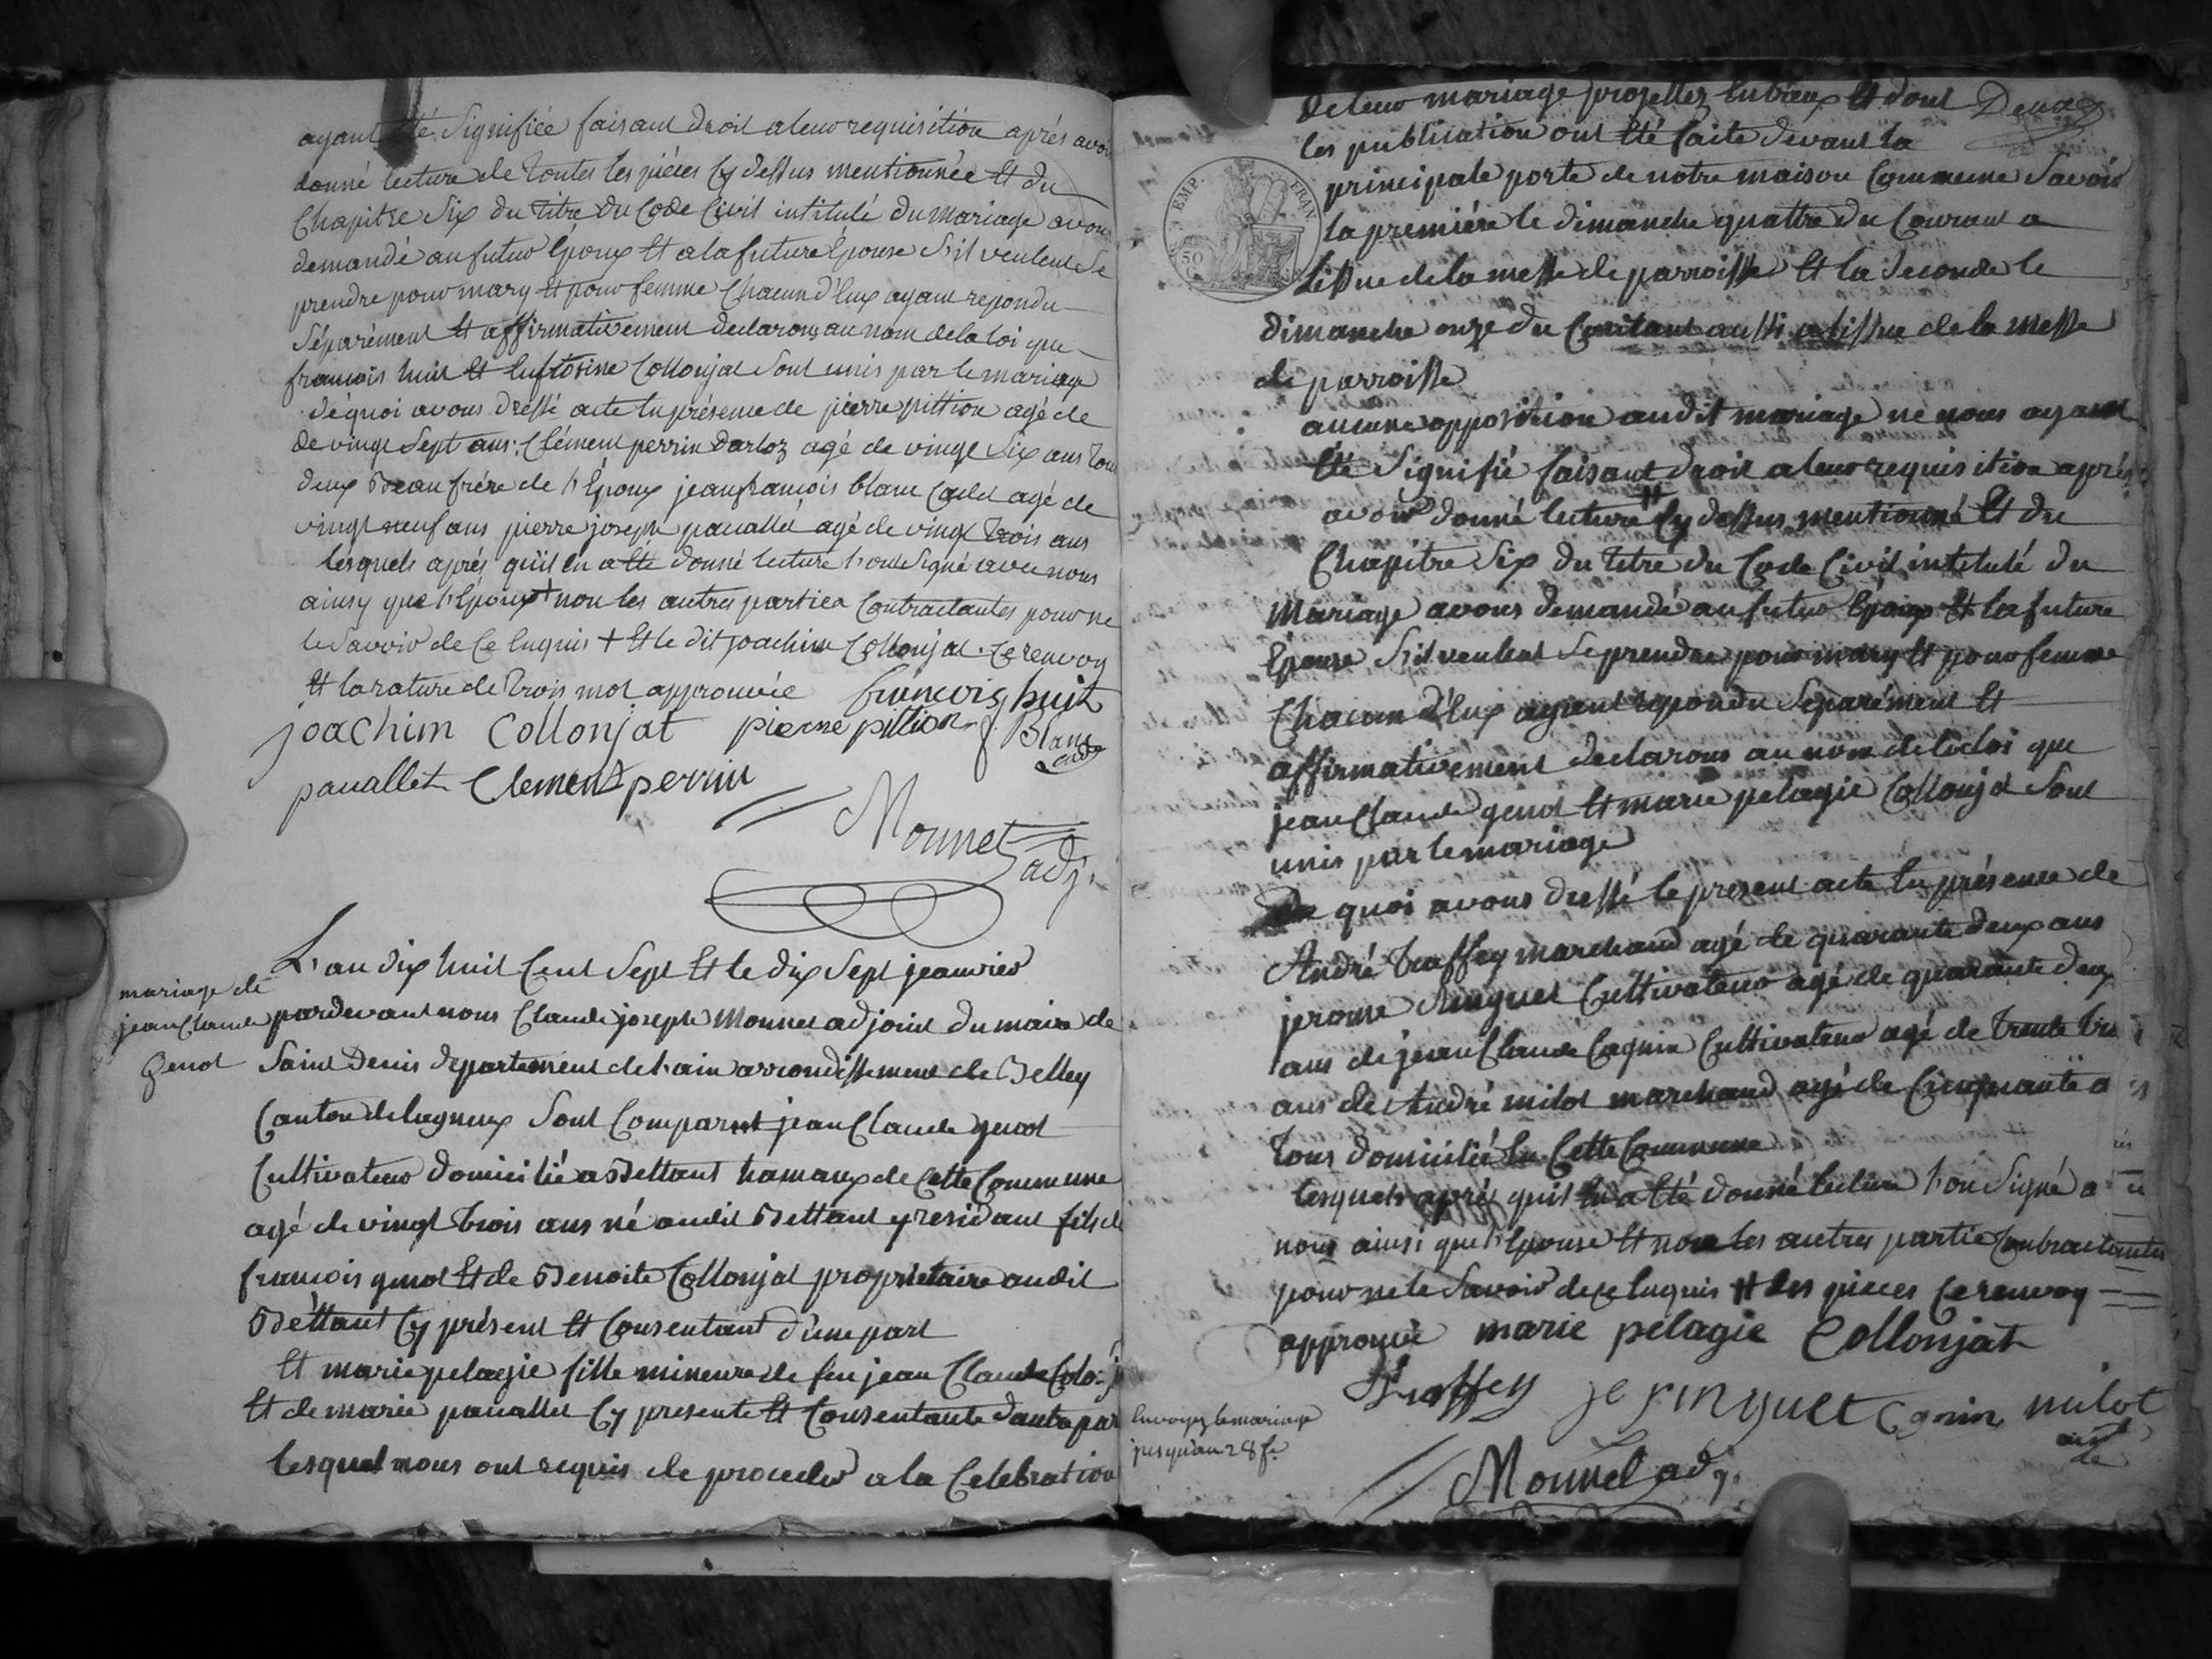 ayant été Signifiée faisant droit a leur requisition aprés avoir
donné lecture de toutes les piéces Cy dessus mentionnée Et du
Chapitre Six du titre du Code Civil intitulé du mariage avons
demandé au futur Epoux Et a la future Epouse S'il veulent Se
prendre pour mary Et pour femme Chacun d'Eux ayant repondu
Séparément Et affirmativement declarons au nom de la loi que
francois huit Et Eufrosine Collonjat Sont unis par le mariage
de quoi avons dressé acte En présence de pierre pittion agé de
de vingt Sept ans Clément perrin darloz agé de vingt Six ans tou
deux Beaufrére de l'Epoux jean francois blanc Cadet agé de
vingt neuf ans pierre joseph pauallet agé de vingt trois ans
lesquels aprés qu'il En a Eté donné lecture l'ont Signé avec nous
ainsy que l'Epoux + non les autres parties Contractantes pour ne
le Savoir de Ce Enquis + Et le dit joachim Collonjat Ce renvoy
Et la rature de trois mot approuvée francois huit
joachim Collonjat pierre pittion f Blanc
cadet
pauallet Clement perrin
Monnet
adj.
L'an dix huit Cent Sept Et le dix Sept jeanvier
mariage de
jean Claude
Genot
pardevant nous Claude joseph Monnet adjoint du maire de
Saint Denis departement de l'ain arrondissement de Belley
Canton de Lagneux Sont Comparut jean Claude genot
Cultivateur domicilié a Bettant hamaux de Cette Commune
agé de vingt trois ans né audit Bettant y residant fils de
francois genot Et de Benoite Collonjat proprietaire audit
Bettant Cy présent Et Consentant d'une part
Et marie pelagie fille mineure de feu jean Claude Colo-j
Et de marie pauallet Cy presente Et Consentante d'autre par
lesquel nous ont requis de proceder a la Celebration
de leur mariage projettez Entreux Et dont Deux
les publication ont Eté faite devant la
principale porte de notre maison Commune Savoir
la premiére le dimanche quattre du Courant a
L'issue de la messe de parroisse Et la Seconde le
EMP. FRAN
50
C
dimanche onze du Courant aussi a L'issue de la messe
de parroisse
aucune opposition audit mariage ne nous ayant
Eté Signifié faisant droit a leur requisition aprés
avoir donné lecture # Cy dessus mentionné Et du
Chapitre Six du titre du Code Civil intitulé du
Mariage avons demandé au futur Epoux Et la future
Epouse S'il veulent Se prendre pour mary Et pour femme
Chacun d'Eux ayant repondu Séparément Et
affirmativement declarons au nom de la loi que
jean Claude genot Et marie pelagie Collonjat Sont
unis par le mariage
De quoi avons dressé le present acte En présence de
André truffey marchand agé de quarante deux ans
jerome Ringuet Cultivateur agé de quarante deux
ans de jean Claude Cagnin Cultivateur agé de trente
ans de André milot marchand agé de Cinquante
tous domicilié En Cette Commune
lesquels aprés qu'il En a Eté donné lecture l'on Signé a
nous ainsi que l'Epouse Et non les autres partie Contractantes
pour ne le Savoir de Ce Enquis # des pieces Ce renvoy
approuvé marie pelagie Collonjat
truffey je ringuet Cagnin milot
ainé
Envoyez le mariage
jusqu'au 28 f.e
Monnet adj.